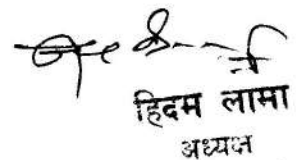 हिदम लामा
अध्यक्ष